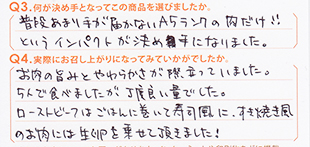 Q3.何が決め手となってこの商品を選びましたか。
普段あまり手が届かないA5ランクの肉だけ!!
というインパクトが決め手になりました。
Q4.実際にお召し上がりになってみていかがでしたか。
お肉の旨みとやわらかさが際立っていました。
5人で食べましたが丁度良い量でした。
ローストビーフはごはんに巻いて寿司風に、すき焼き風
のお肉には生卵を乗せて頂きました!